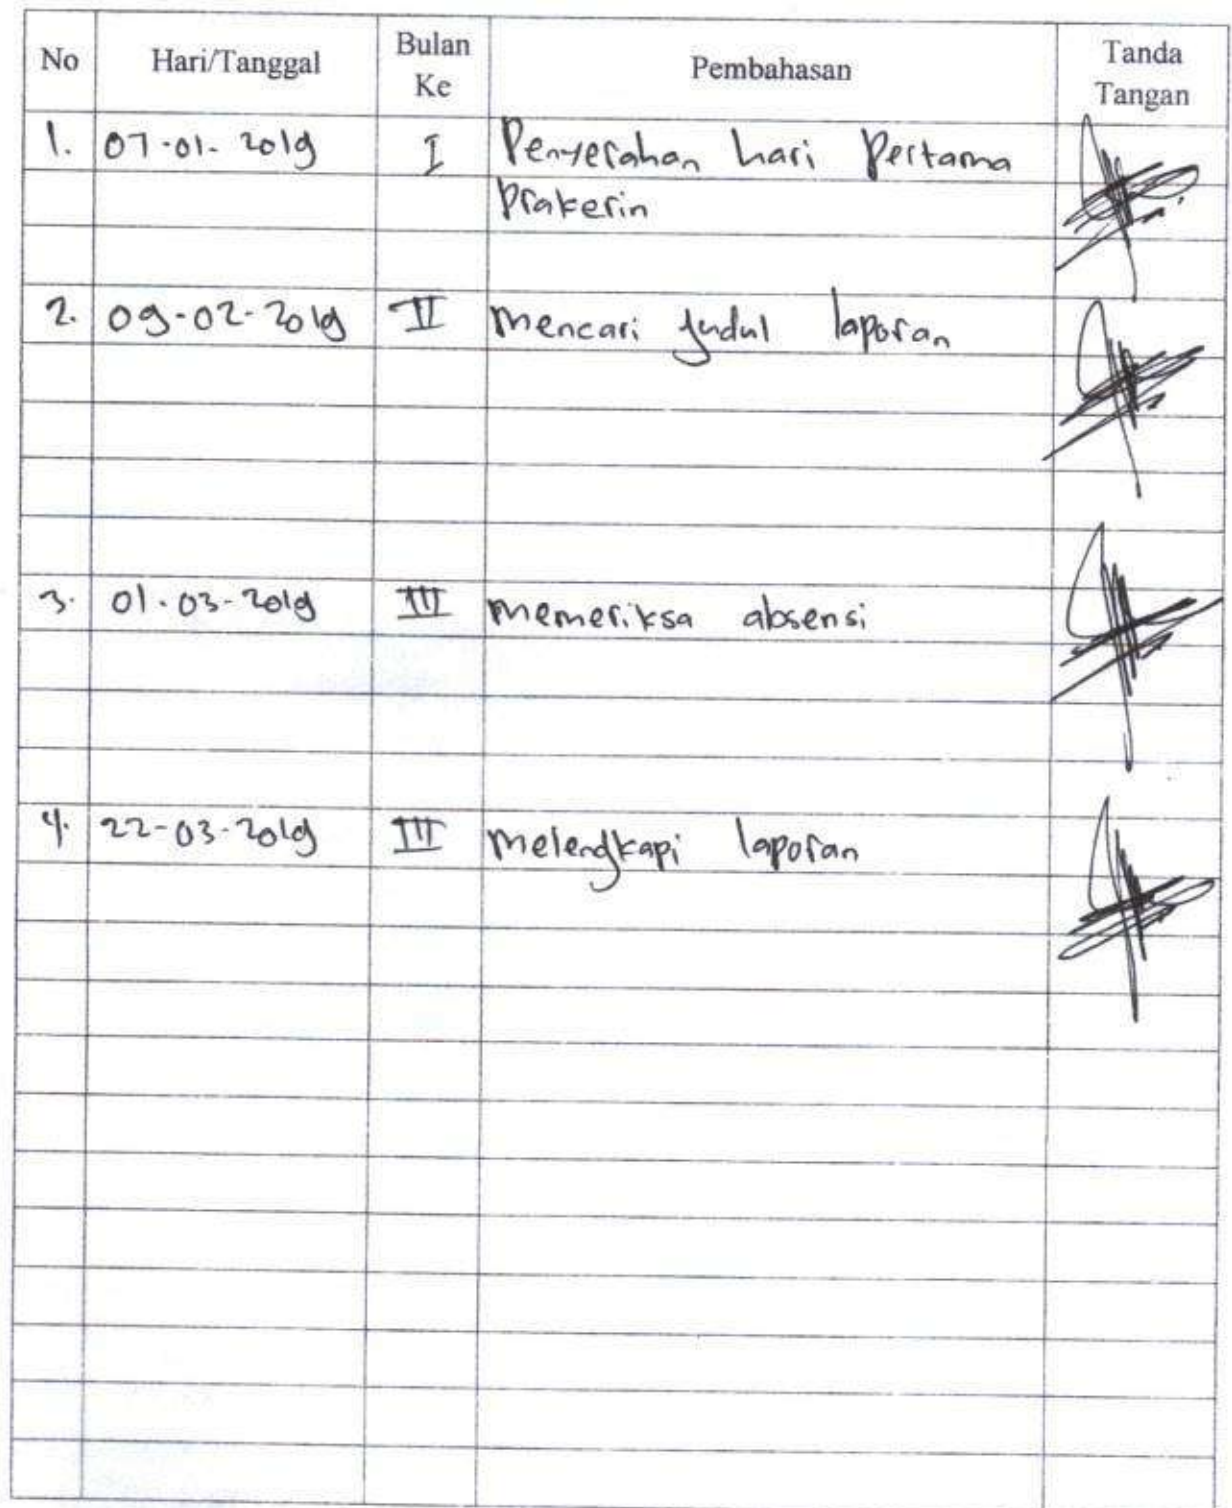 No Hari/Tanggal Bulan Ke Pembahasan Tanda Tangan
1. 07-01-2019 I Penyerahan hari Pertama
Prakerin
2. 09-02-2019 II Mencari judul laporan
3. 01-03-2019 III Memeriksa absensi
4. 22-03-2019 III Melengkapi laporan